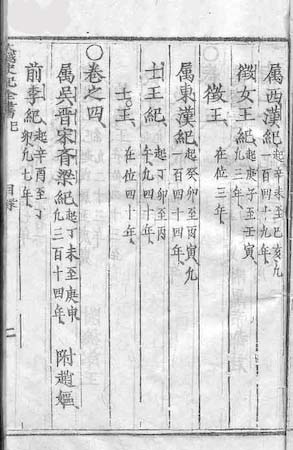 属西漢紀 起辛未至己亥凡一百四十九年
徵女王紀 起庚子至壬寅凡三年
徵王 在位三年
属東漢紀 起癸卯至丙寅凡一百四十四年
士王紀 起丁卯至丙午凡四十年
士王 在位四十年
○卷之四
属吳晋宋斉梁紀 起丁未至庚申凡三百十四年 附趙嫗
前李紀 起辛酉至丁卯凡七年
越史記全書 紀 目录 二